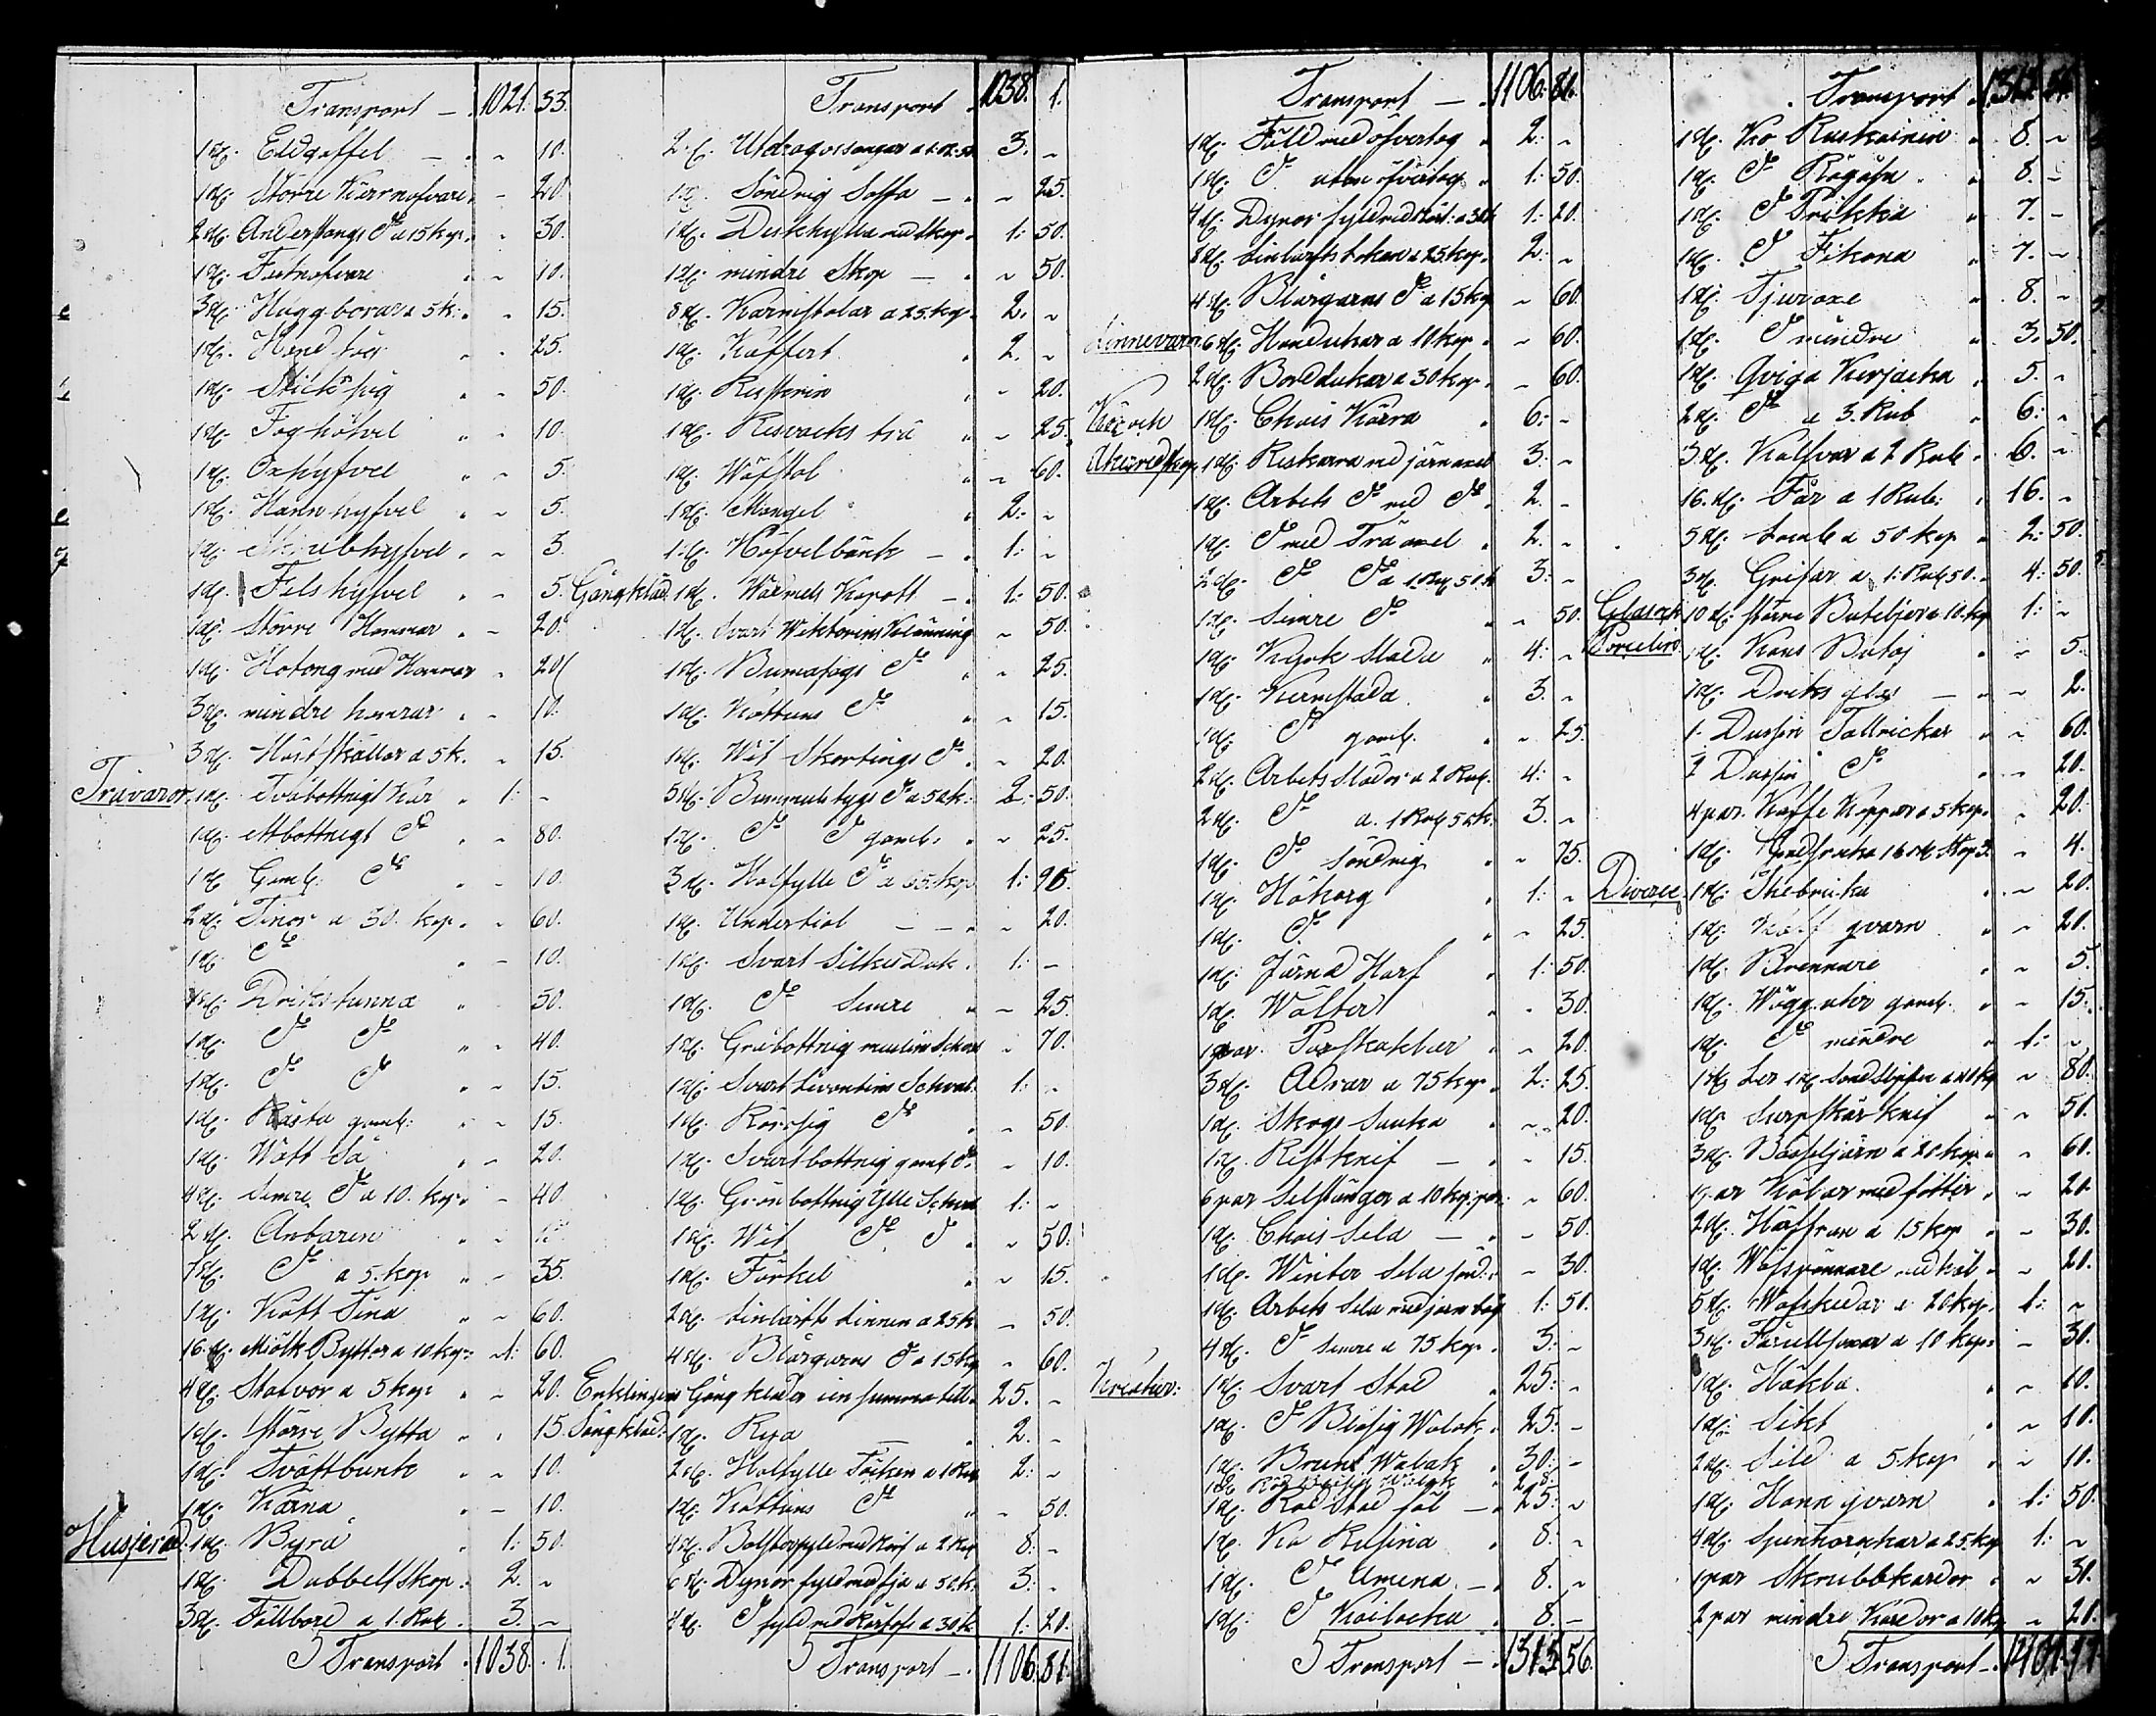 Transport — 1021. 53.
1 st. Eldgaffel — " - 10.
1 st. Större Kärrnafvare " - 20.
2 st. Anderstangs D:o a 15 kop. " 30.
1 st. Fastnafvare " - 10.
3 st. Huggborar a 5 k. " - 15.
1 st. Hand såg " - 25.
1 st. Sticksåg " - 50.
1 st. Foghöfvel " - 10.
1 st. Oxhyfvel " - 5.
1 st. Hann hyfvel " - 5.
1 st. Skrubbhyfvel " - 3.
1 st. Falshyfvel " - 5.
1 st. Större Hammar " - 20.
1 st. Hotong med Hammar " 20.
3 st. mindre hamrar " - 10.
3 st. Hästskällor a 5 k. " 15.
Trävaror. 1 st. Tvåbottnigt Kar " 1: -
1 st. ettbottnigt D:o " - 80.
1 st. Gaml. D:o " - 10.
2 st. Tinor a 30. kop. " - 60.
1 st. D:o " - 10.
1 st. Drickstunna " 50.
1 st. D:o D:o " - 40.
1 st. D:o D:o " - 15.
1 st. Kasta gaml. " - 15.
1 st. Watt Så " - 20.
4 st. Semre D:o a 10. kop. " - 40.
2 st. Anbaren " -
7 st. D:o a 5. kop " - 35.
1 st. Kaft Tina " - 60.
16. st. Miölk Byttor a 10 kop. " 1: 60.
4 st. Stafvor a 5 kop: " - 20.
1 st. större Bytta " - 15.
1 st. Tvättbunk " - 10.
1 st. Kärna " - 10.
Husgeråd: 1 st. Byrå " 1: 50.
1 st. Dubbelskop. 2. -
3 st. Fällbord a 1. Rub. 3. -
Transport 1038. 1.
Transport 1038. 1.
2 st. Utdragssängar a 1 R. 50 3. -
1 st. Söndrig Soffa — - 25.
1 st. Diskhylla med skop. 1: 50.
1 st. mindre Skop — " - 50.
8 st. Karmstolar a 25. kop. 2. -
1 st. Koffert " 2. -
1 st. Resskrin " - 20.
1 st. Resvacks trä " - 25.
1 st. Wäfstol " - 60.
1 st. Mangel " 2: -
1 st. Höfvelbänk — " 1: -
Gångkläd. 1 st. Wadmals Kapott — 1: 50.
1 st. Svart Wiktorins Klänning - 50.
1 st. Bumasugs D:o " - 25.
1 st. Kattuns D:o " - 15.
1 st. Wit Skortings D:o " - 20.
5 st. Bummuls tygs D:o a 50 k. 2: 50.
1 st. D:o D:o gaml. " - 25.
3 st. Halfylle D:o a 65. kop. 1: 95.
1 st. Underkiol — — " - 20.
1 st. Svart Silkes Duk. 1: -
1 st. D:o Semre " - 25.
1 st. Gråbottnig muslins Schal - 70.
1 st. Svart Levantins Schal. 1: -
1 st. Rörosig D:o " - 50.
1 st. Svartbottnig gaml D:o - 10.
1 st. Grönbottnig Ylle Schal 1: -
1 st. Wit D:o D:o " - 50.
1 st. Förkel " - 15.
2 st. Linlärfts Linnen a 25 k. - 50.
4 st. Blårgarns D:o a 15 kop - 60.
Enklingens Gångkläder i en summa till. 25. -
Sängkläd: 1 st. Rya — " 2. -
2 st. Halfylle Täcken a 1 Rub 2: -
1 st. Kattuns D:o " - 50.
4 st. Bolstrar fyld med kaf a 2 Rub 8: -
6 st. Dynor fyld med fjä a 50. k. 3: -
4 st. D:o fyld med Kärkof a 30 k. 1: 20.
Transport —. 1106. 81.
Transport — 1106: 81.
1 st. Fäll med öfvertog " 2: -
1 st. D:o utan öfvertog " 1: 50.
4 st. Dynor fyld med Kört: a 30 k 1: 20.
8 st. Linlarfts Lakan a 25 kop. 2: -
4 st. Blårgarns D:o a 15 kop - 60.
Linnevaror. 6 st. Handukar a 10 kop. " - 60.
2 st. Borddukar a 30 kop. " - 60.
Kör och 1 st. Chais Kärra " 6: -
Åkeredskap. 1 st. Reskarra med järnaxel 3: -
1 st. Arbets D:o med D:o 2. -
1 st. D:o med Trä axel " 2. -
2 st. D:o D:o a 1 Rub 50. k 3: -
1 st. Semre D:o " - 50.
1 st. Kyrk Slada " 4: -
1 st. Karmslada " 3. -
1 st. D:o gaml. " - 25.
2 st. Arbets Slador a 2 Rub. 4: -
2 st. D:o a. 1 Rub 50 k. 3. -
1 st. D:o söndrig " - 75.
1 st. Hökorg " 1: -
1 st. D:o " - 25.
1 st. Järnd Harf " 1: 50.
1 st. Wälter " - 30.
1 par. Parskaklar " - 20.
3 st. Adrar a 75 kop. 2: 25.
1 st. Skogs Sauka " - 20.
1 st. Ristknif — " - 15.
6 par Selstänger a 10 kop. par. - 60.
1 st. Chais Sela — " - 50.
1 st. Winter Sela sönd. " - 30.
1 st. Arbets Sela med järn bög 1: 50.
4 st. D:o Semre a 75 kop. 3: -
Kreatur: 1 st. Svart Sto 25: -
1 st. D:o Bläsig Walak. 25: -
1 st. Brunt Walak " 30: -
1 st. Röd Bläsig Walak " 28.
1 st. Röd Stod föl — 25: -
1 st. Ko Rusina " 8: -
1 st. D:o Umena — " 8. -
1 st. D:o Kailocka " 8. -
Transport — 1315 56.
Transport 1315. 56.
1 st. Ko Ruskainin " 8. -
1 st. D:o Rögåsa " 8. -
1 st. D:o Prikka " 7. -
1 st. D:o Fikona " 7. -
1 st. Tjuroxe " 8. -
1 st. D:o mindre " 3. 50.
1 st. Qviga Kirjacka " 5. -
2 st. D:o a 3. Rub " 6: -
3 st. Kalfvar a 2 Rub. 6. -
16. st. Får a 1 Rub: 16. -
5 st. Lamb a 50 kop " 2: 50.
3 st. Grisar a 1: Rub 50. 4: 50.
Glas och 10 st. större Buteljer a 10. kop 1: -
Porcelins. 1 st. Kans Butelj " - 5.
1 st. Dricks glas — " - 2.
1 Dussin Tallrickar " - 60.
1 Dussin D:o " - 20.
4 par. Kaffe Koppar a 5 kop. - 20.
1 st. - 4.
Diverse. 1 st. Thebricka " - 20.
1 st. Kaff qvarn " - 20.
1 st. Brennare " - 5.
1 st. Wäggutier gaml. " - 15.
1 st. D:o mindre " 1: -
- 80.
1 st. Surpskär knif " - 50.
3 st. Båseljärn a 20 kop " - 60.
1 par Käbar med fötter " - 20.
2 st. Häffran a 15 kop " - 30.
1 st. Wäfspännare " - 20.
5 st. Wäfskedar a 20 kop. 1: -
3 st. Fårullsaxar a 10 kop. - 30.
1 st. Häkla. " - 10.
1 st. Sikt " - 10.
2 st. Sild a 5 kop " - 10.
1 st. Hann qvarn " 1: 50.
4 st. Spinrockar a 25 kop 1: -
1 par Skrubbkardor " - 30.
2 par mindre Kardor a 10 kop - 20.
Transport — 1401. 97.